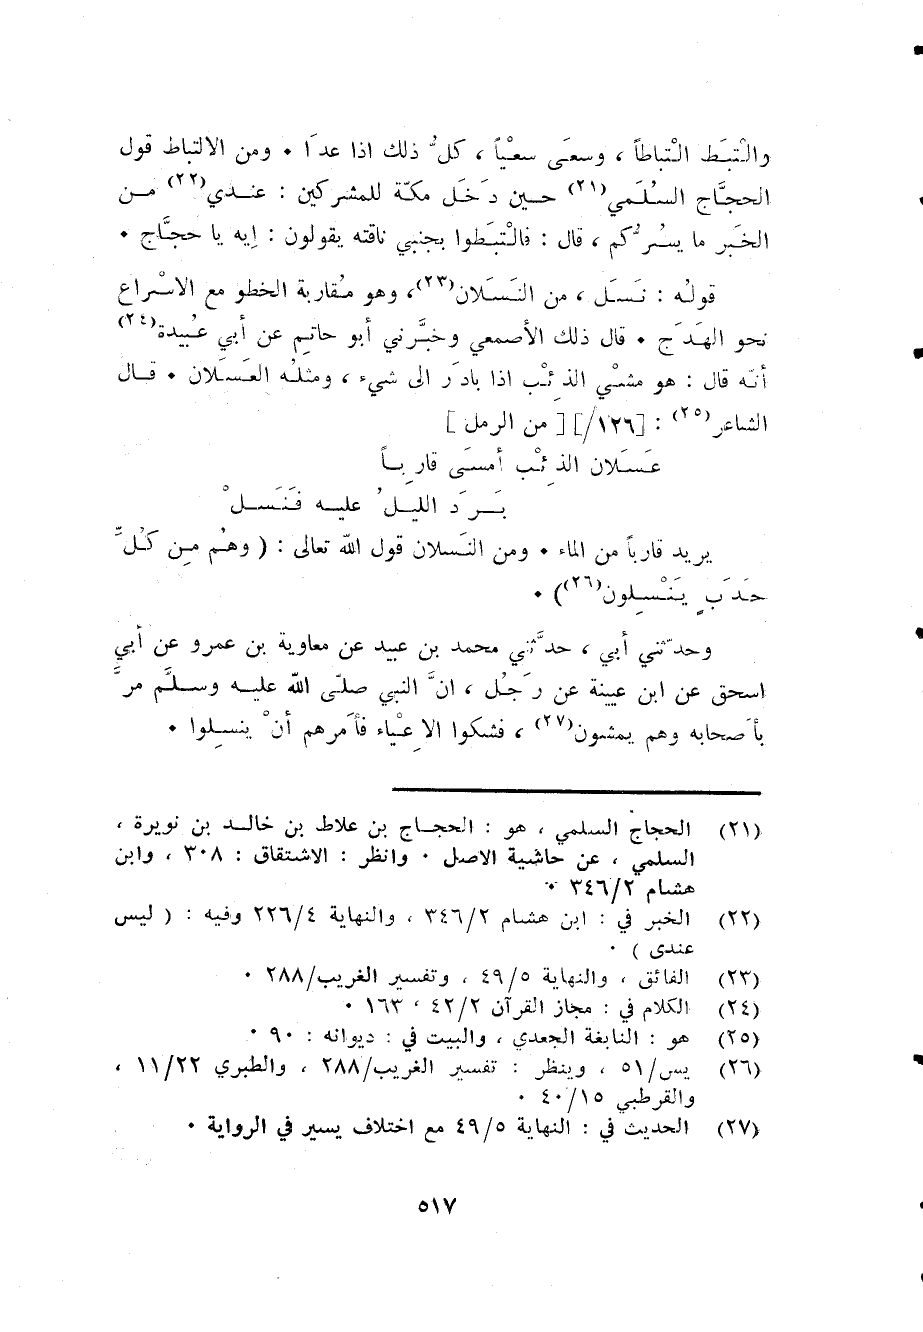 والْتبَط الْتباطاً ، وسعَى سعْياً ، كلُّ ذلك اذا عدَا ٠ ومن الالتباط قول
الحجَّاج السُلَمي(٢١) حين دَخَل مكّة للمشركين : عندي(٢٢) من
الخبَر ما يسُرُّكم ، قال : فالْتبَطوا بجنبي ناقته يقولون : إيه يا حجَّاج ٠
قولُه : نَسَل ، من النَسَلان(٢٣)، وهو مُقاربة الخطو مع الاسْراع
نحو الهَدَج ٠ قال ذلك الأصمعي وخبَّرني أبو حاتم عن أبي عُبيدة(٢٤)
أنّه قال : هو مشْي الذِئْب اذا بادَر الى شيء ، ومثلُه العَسَلان ٠ قال
الشاعر(٢٥) : [١٢٦/] [ من الرمل ]
عَسَلان الذِئْب أمسَى قارِباً
بَرَدَ الليلُ عليه فَنَسَلْ
يريد قارباً من الماء ٠ ومن النَسلان قول الله تعالى : ( وهُم مِن كُلِّ
حَدَبٍ يَنْسِلون(٢٦)) ٠
وحدّثني أبي ، حدَّثني محمد بن عبيد عن معاوية بن عمرو عن أبي
اسحق عن ابن عيينة عن رَجُل ، انَّ النبي صلّى الله عليه وسلَّم مرَّ
بأَصحابه وهم يمشون(٢٧) ، فشكوا الاِعْياء فأَمرهم أنْ ينسِلوا ٠
(٢١) الحجاج السلمي ، هو : الحجاج بن علاط بن خالد بن نويرة ،
السلمي ، عن حاشية الاصل ٠ وانظر : الاشتقاق : ٣٠٨ ، وابن
هشام ٣٤٦/٢ ٠
(٢٢) الخبر في : ابن هشام ٣٤٦/٢ ، والنهاية ٢٢٦/٤ وفيه : ( ليس
عندى ) ٠
(٢٣) الفائق ، والنهاية ٤٩/٥ ، وتفسير الغريب/٢٨٨ ٠
(٢٤) الكلام في : مجاز القرآن ٤٢/٢ ، ١٦٣ ٠
(٢٥) هو : النابغة الجعدي ، والبيت في : ديوانه : ٩٠ ٠
(٢٦) يس/٥١ ، وينظر : تفسير الغريب/٢٨٨ ، والطبري ١١/٢٢ ،
والقرطبي ٤٠/١٥ ٠
(٢٧) الحديث في : النهاية ٤٩/٥ مع اختلاف يسير في الرواية ٠
٥١٧